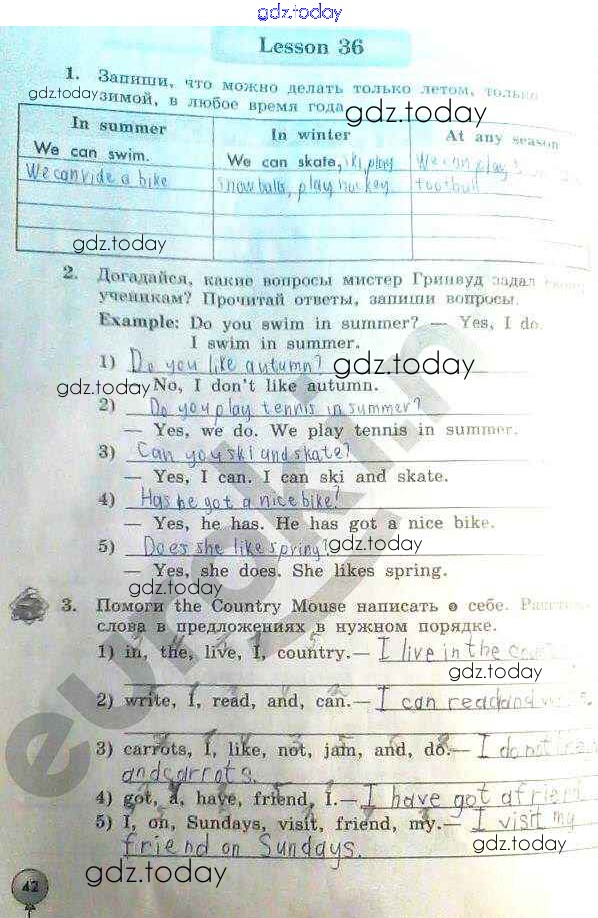 gdz.today
Lesson 36
1. Запиши, что можно делать только летом, только
gdz.today зимой, в любое время года
gdz.today
In summer In winter At any season
We can swim. We can skate, ski, play We can play
We can ride a bike snowballs, play hockey football
gdz.today
2. Догадайся, какие вопросы мистер Гринвуд задал
ученикам? Прочитай ответы, запиши вопросы.
Example: Do you swim in summer? — Yes, I do.
I swim in summer.
1) Do you like autumn? gdz.today
gdz.today No, I don't like autumn.
2) Do you play tennis in summer?
— Yes, we do. We play tennis in summer.
3) Can you ski and skate?
— Yes, I can. I can ski and skate.
4) Has he got a nice bike?
— Yes, he has. He has got a nice bike.
5) Does she like spring? gdz.today
— Yes, she does. She likes spring.
gdz.today
3. Помоги the Country Mouse написать о себе.
слова в предложениях в нужном порядке.
1) in, the, live, I, country.— I live in the
gdz.today
2) write, I, read, and, can.— I can read and
3) carrots, I, like, not, jam, and, do.— I do not
and carrots.
4) got, a, have, friend, I.— I have got a friend
5) I, on, Sundays, visit, friend, my.— I visit my
friend on Sundays.
42 gdz.today gdz.today
euroki